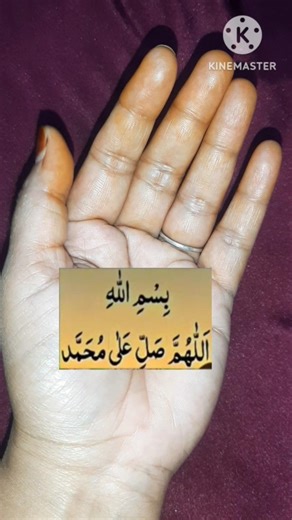 KINEMASTER
بِسْمِ اللّٰهِ
اَللّٰهُمَّ صَلِّ عَلٰى مُحَمَّد